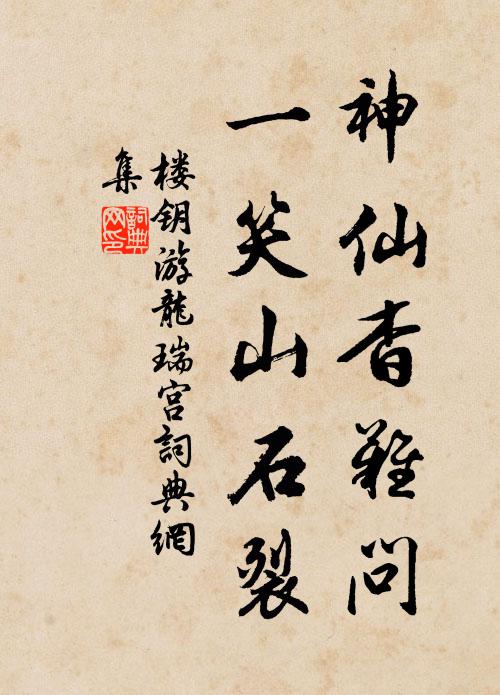 神仙杳難问
一笑山石裂
楼钥游龍瑞宫詞典網
集
詞典
网印